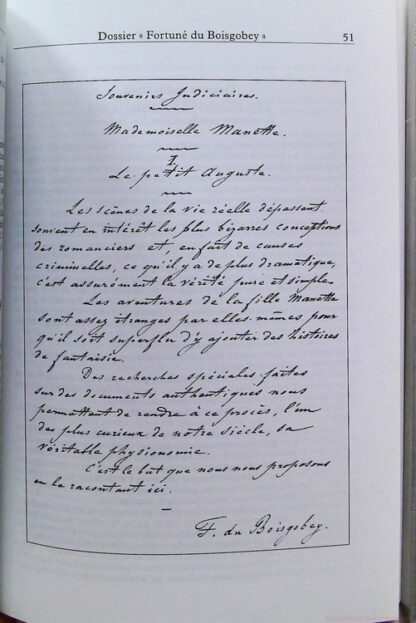 Dossier « Fortuné du Boisgobey » 51
Souvenirs Judiciaires.
Mademoiselle Manette.
I.
Le petit Auguste.
Les scènes de la vie réelle dépassent
souvent en intérêt les plus bizarres conceptions
des romanciers et, en fait de causes
criminelles, ce qu'il y a de plus dramatique,
c'est assurément la vérité pure et simple.
Les aventures de la fille Manette
sont assez étranges par elles mêmes pour
qu'il soit superflu d'y ajouter des histoires
de fantaisie.
Des recherches spéciales faites
sur des documents authentiques nous
permettent de rendre à ce procès, l'un
des plus curieux de notre siècle, sa
véritable physionomie.
C'est le but que nous nous proposons
en le racontant ici.
F. du Boisgobey.